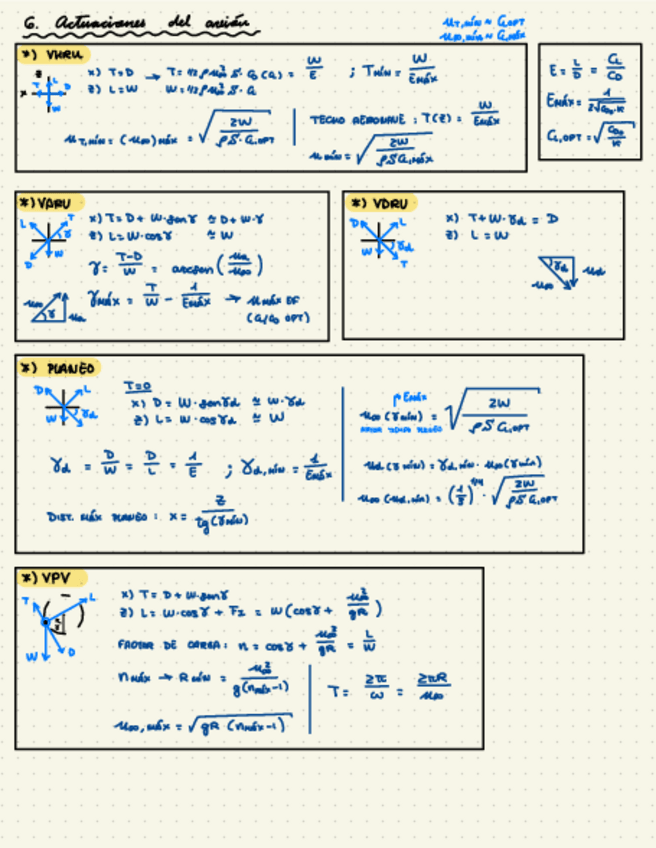 6. Actuaciones del avión
u_T,mín ≈ C_L,OPT
u_∞,mín ≈ C_L,máx
*) VHRU
x) T=D → T=1/2 ρ u_∞² S · C_D(C_L) = W/E ; T_mín = W/E_máx
z) L=W W=1/2 ρ u_∞² S · C_L
u_T,mín = (u_∞)_máx = √(2W/(ρS·C_L,OPT))
TECHO AERONAVE : T(z) = W/E_máx
u_mín = √(2W/(ρS C_L,máx))
E = L/D = C_L/C_D
E_máx = 1/(2√(C_D0·K))
C_L,OPT = √(C_D0/K)
*) VARU
x) T = D + W·senγ ≅ D + W·γ
z) L = W·cosγ ≅ W
γ = (T-D)/W = arcsen(u_a/u_∞)
γ_máx = T/W - 1/E_máx → u_máx EF
(C_L/C_D OPT)
*) VDRU
x) T + W·γ_d = D
z) L = W
*) PLANEO
T=0
x) D = W·senγ_d ≅ W·γ_d
z) L = W·cosγ_d ≅ W
γ_d = D/W = D/L = 1/E ; γ_d,mín = 1/E_máx
DIST. MÁX PLANEO : x = z/tg(γ_mín)
E_máx
u_∞(γ_mín) = √(2W/(ρS C_L,OPT))
u_d(γ_mín) = γ_d,mín · u_∞(γ_mín)
u_∞(u_d,mín) = (1/3)^1/4 · √(2W/(ρS C_L,OPT))
*) VPV
x) T = D + W·senγ
z) L = W·cosγ + F_z = W(cosγ + u_∞²/gR)
FACTOR DE CARGA : n = cosγ + u_∞²/gR = L/W
n_máx → R_mín = u_∞²/(g(n_máx-1))
T = 2π/ω = 2πR/u_∞
u_∞,máx = √(gR (n_máx-1))